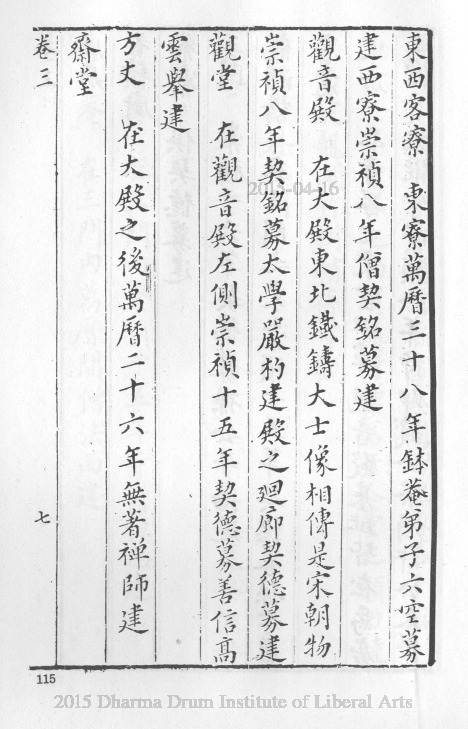 東西客寮　東寮萬曆三十八年鉢菴弟子六空募
建西寮崇禎八年僧契銘募建
觀音殿　在大殿東北鐵鑄大士像相傳是宋朝物
崇禎八年契銘募太學嚴杓建殿之廻廊契德募建
觀堂　在觀音殿左側崇禎十五年契德募善信高
雲舉建
方丈　在大殿之後萬曆二十六年無著禅師建
齋堂
卷三
七
2015-04-16
115
2015 Dharma Drum Institute of Liberal Arts